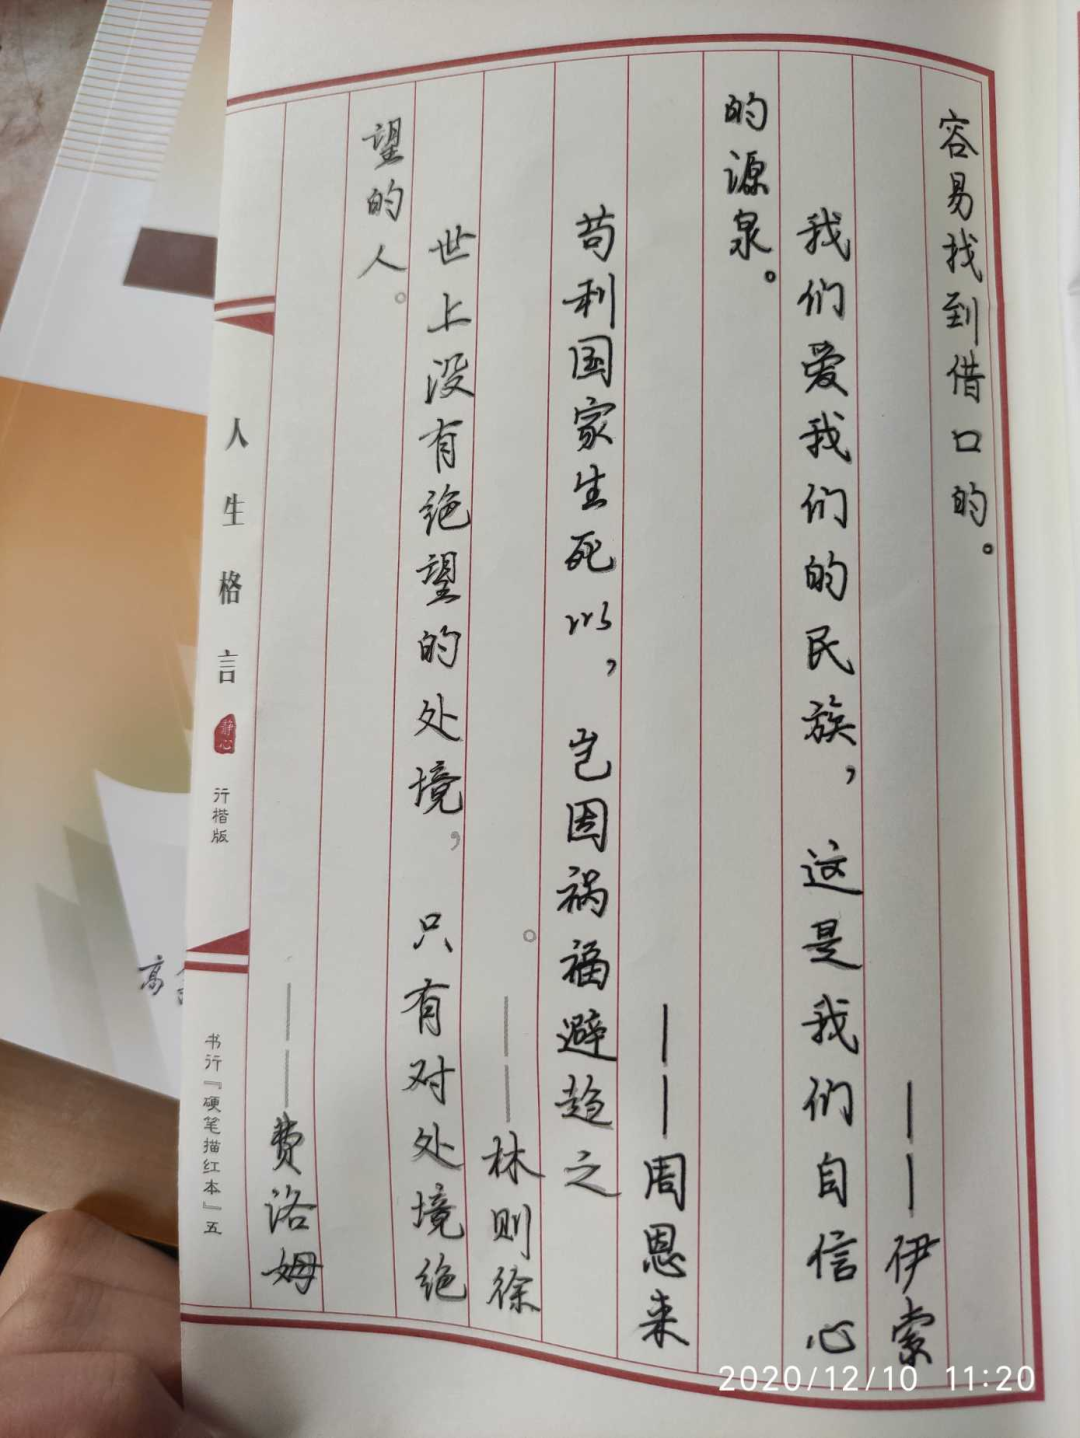 容易找到借口的。
——伊索
我们爱我们的民族，这是我们自信心
的源泉。
——周恩来
苟利国家生死以，岂因祸福避趋之
。
——林则徐
世上没有绝望的处境，只有对处境绝
望的人。
——费洛姆
人生格言
静心
行楷版
书行『硬笔描红本』五
高
2020/12/10 11:20